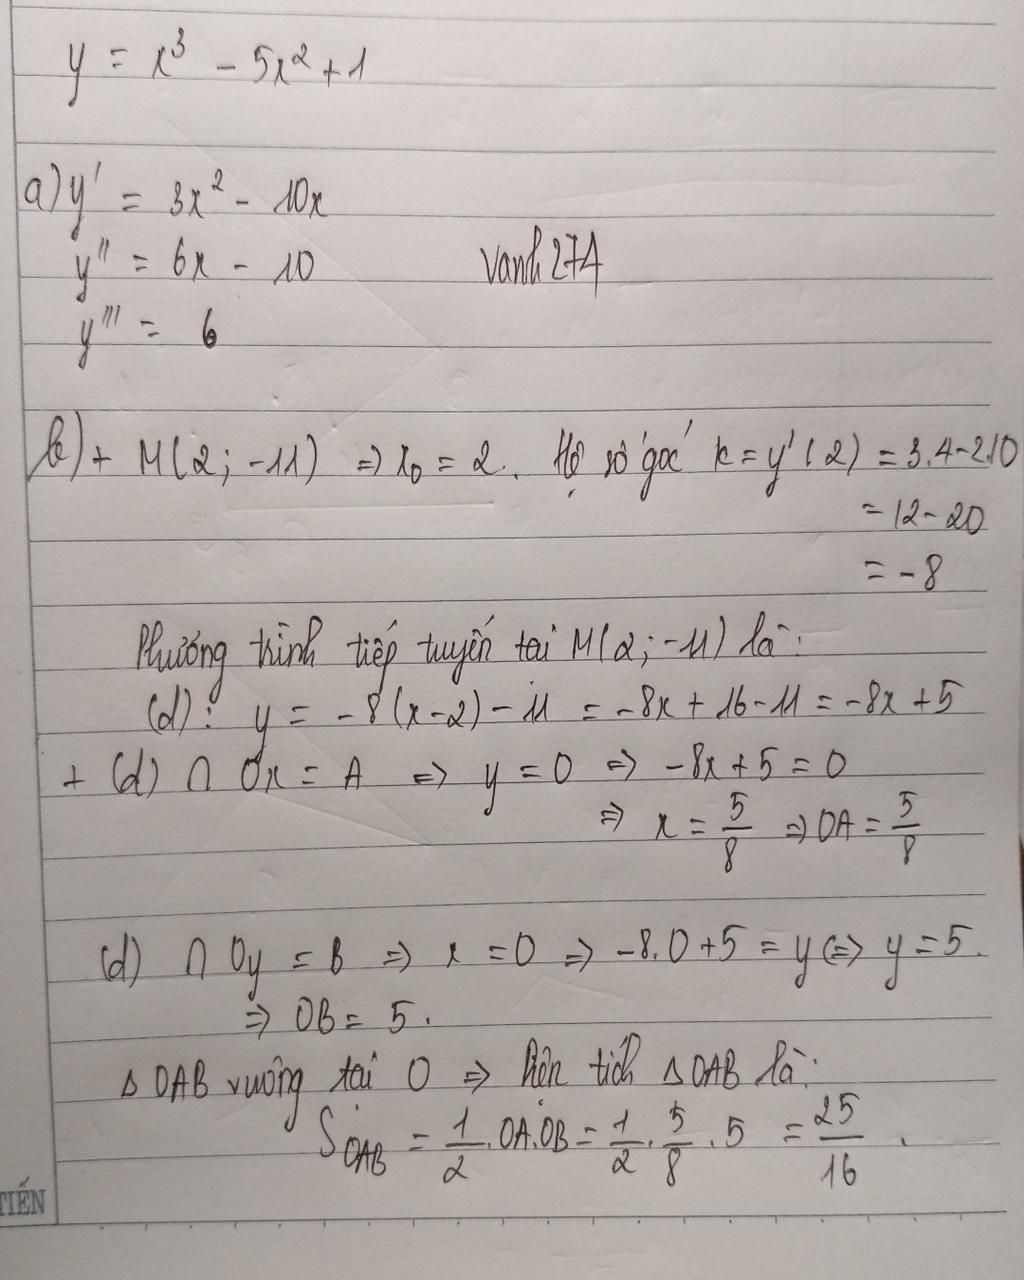 y = x³ - 5x² + 1
a) y' = 3x² - 10x
y'' = 6x - 10
vanh274
y''' = 6
b) + M(2; -11) => x₀ = 2. Hệ số góc k = y'(2) = 3.4 - 2.10
= 12 - 20
= -8
Phương trình tiếp tuyến tại M(2; -11) là:
(d): y = -8(x-2) - 11 = -8x + 16 - 11 = -8x + 5
+ (d) ∩ Ox = A => y = 0 => -8x + 5 = 0
=> x = 5/8 => OA = 5/8
(d) ∩ Oy = B => x = 0 => -8.0 + 5 = y <=> y = 5.
=> OB = 5.
Δ OAB vuông tại O => Diện tích Δ OAB là:
S_OAB = 1/2 . OA.OB = 1/2 . 5/8 . 5 = 25/16 .
TIẾN